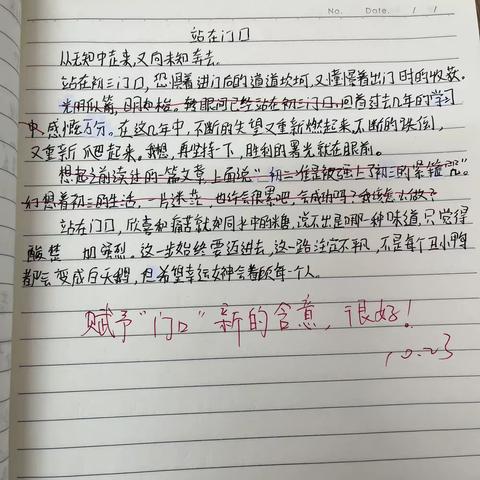 No.
Date. / /
站在门口
从无知中走来,又向未知奔去。
站在初三门口,恐惧着进门后的道道坎坷,又憧憬着出门时的收获。
光阴似箭,日月如梭。转眼间已经站在初三门口,回首过去几年的学习
感慨万分。在这几年中,不断的失望又重新燃起来,不断的跌倒,
又重新爬起来。我想,再坚持一下,胜利的曙光就在眼前。
想起之前读过的一篇文章,上面说"初三难是被强上了初三的紧箍咒"。
幻想着初三的生活,一片迷茫 也许会很累吧,会成功吗?我该怎么做?
站在门口,欣喜和痛苦就如同水中的糖,说不出是哪一种味道,只觉得
酸楚 加强烈。这一步始终要迈进去,这一路注定不平凡,不是每个丑小鸭
都会变成白天鹅,但希望幸运女神会眷顾每一个人。
赋予"门口"新的含意,很好!
10.23